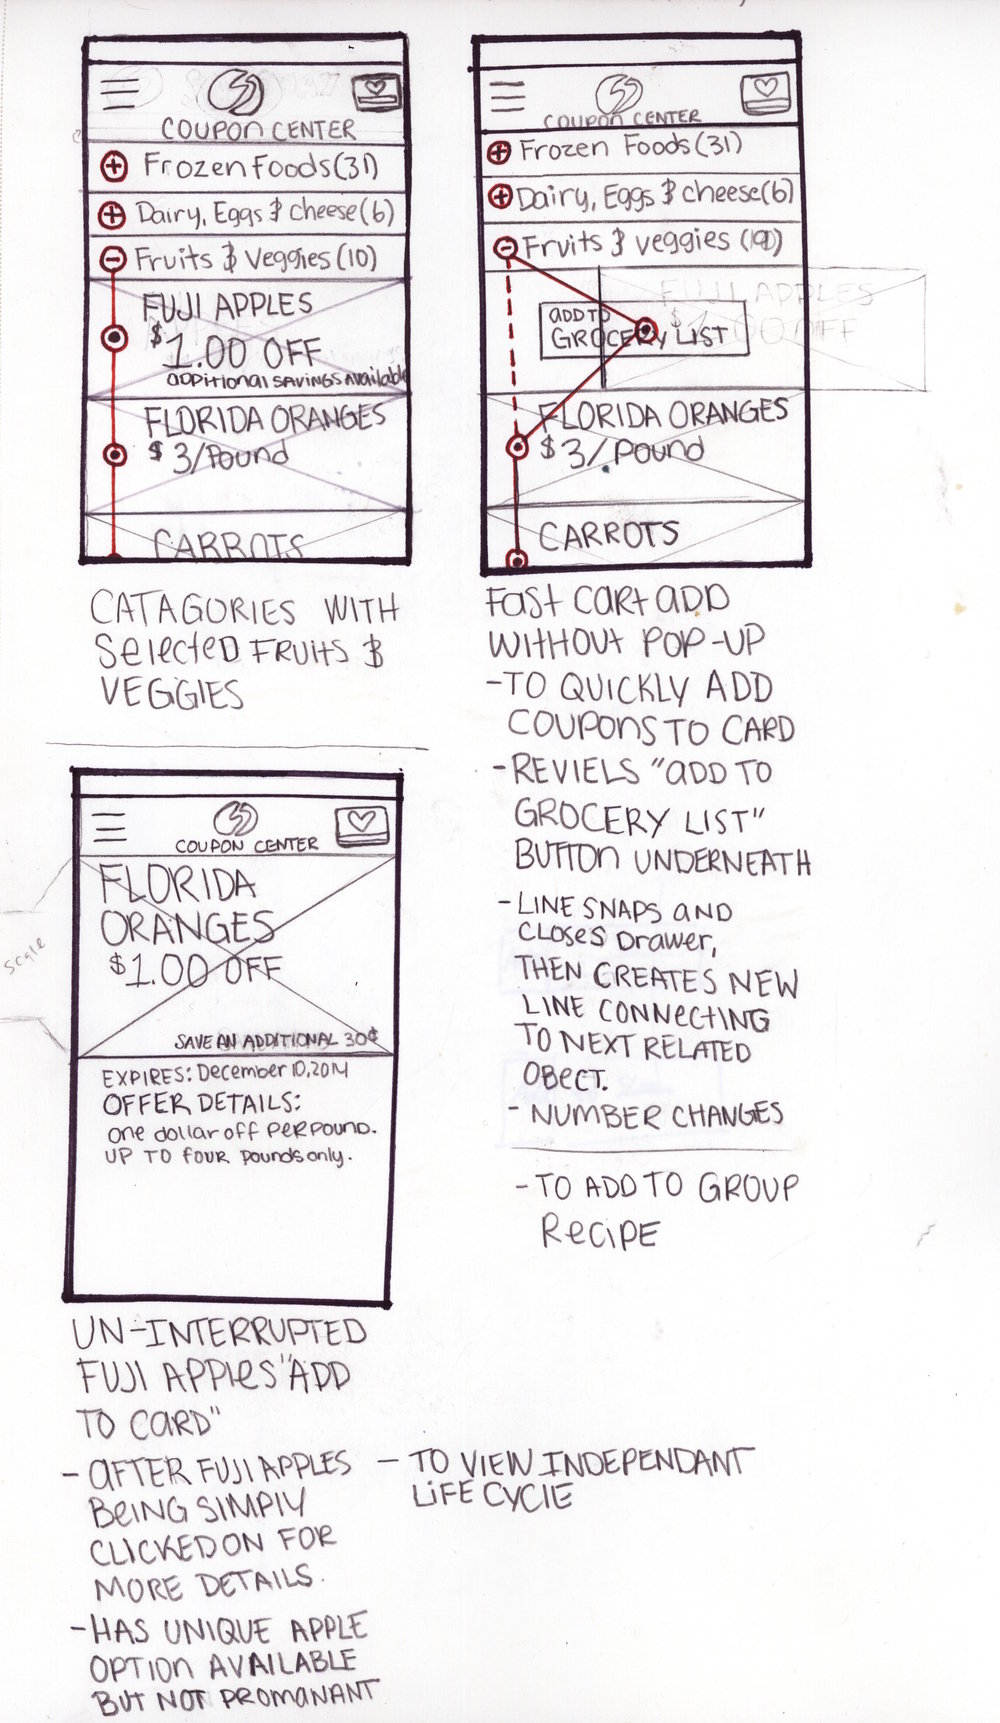 COUPON CENTER
Frozen Foods (31)
Dairy, Eggs & cheese (6)
Fruits & Veggies (10)
FUJI APPLES
$1.00 OFF
ADDITIONAL SAVINGS Available
FLORIDA ORANGES
$3/Pound
CARROTS
CATAGORIES WITH
Selected FRUITS &
VEGGIES
COUPON CENTER
Frozen Foods (31)
Dairy, Eggs & cheese (6)
Fruits & veggies
FUJI APPLES
$1.00 OFF
ADD TO
GROCERY LIST
FLORIDA ORANGES
$3/Pound
CARROTS
FAST CART ADD
WITHOUT POP-UP
-TO QUICKLY ADD
COUPONS TO CARD
-REVIELS "ADD TO
GROCERY LIST"
BUTTON UNDERNEATH
-LINE SNAPS AND
CLOSES DRAWER,
THEN CREATES NEW
LINE CONNECTING
TO NEXT RELATED
OBECT.
-NUMBER CHANGES
-TO ADD TO GROUP
RECIPE
COUPON CENTER
FLORIDA
ORANGES
$1.00 OFF
SAVE AN ADDITIONAL 30¢
EXPIRES: December 10, 2014
OFFER DETAILS:
one dollar off PER POUND.
UP TO four pounds only.
scale
UN-INTERRUPTED
FUJI APPLES "ADD
TO CARD"
-AFTER FUJI APPLES
BEING SIMPLY
CLICKED ON FOR
MORE DETAILS.
-HAS UNIQUE APPLE
OPTION AVAILABLE
BUT NOT PROMANANT
-TO VIEW INDEPENDANT
LIFE CYCLE